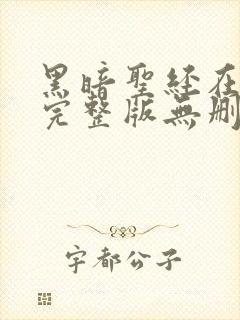 黑暗聖經在
完整版無刪
宇都公子